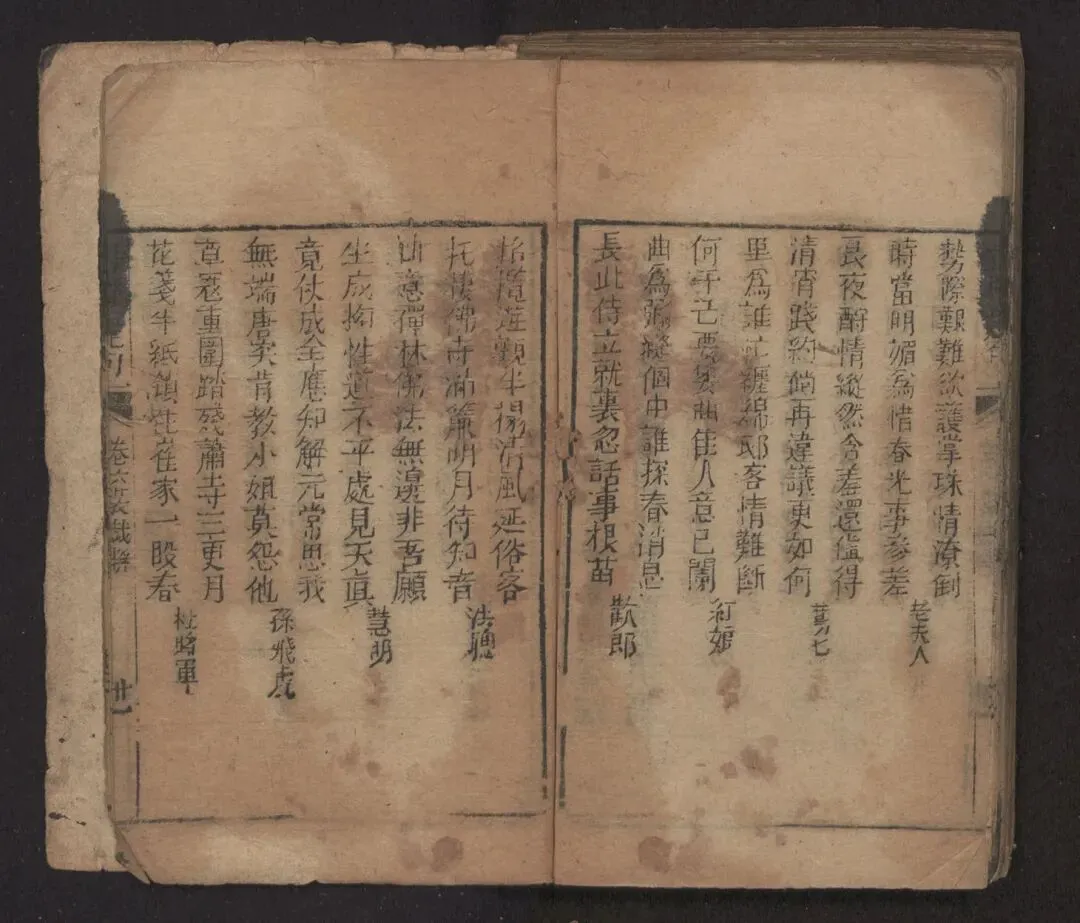 勢際艱難欲護掌珠情潦倒
時當明媚為惜春光事參差
老夫人
長夜酧情縱然含羞還儘得
清宵踐約倘再違議更如何
鶯七
里為誰忙纏綿邸客情難斷
何干己要宛曲佳人意已闌
紅娘
曲為彌縫個中誰探春消息
長此侍立就裏忽話事根苗
歡郎
蓮觀半榻清風延俗客
托棲佛寺滿簾明月待知音
法聰
意禪林佛法無邊非吾願
坐成拘性道不平處見天真
慧明
竟仗成全應知解元常思我
無端唐突肯教小姐莫怨他
孫飛虎
草寇重圍踏殘蕭寺三更月
花箋半紙鎖住崔家一股春
杜將軍
卷六
廿一